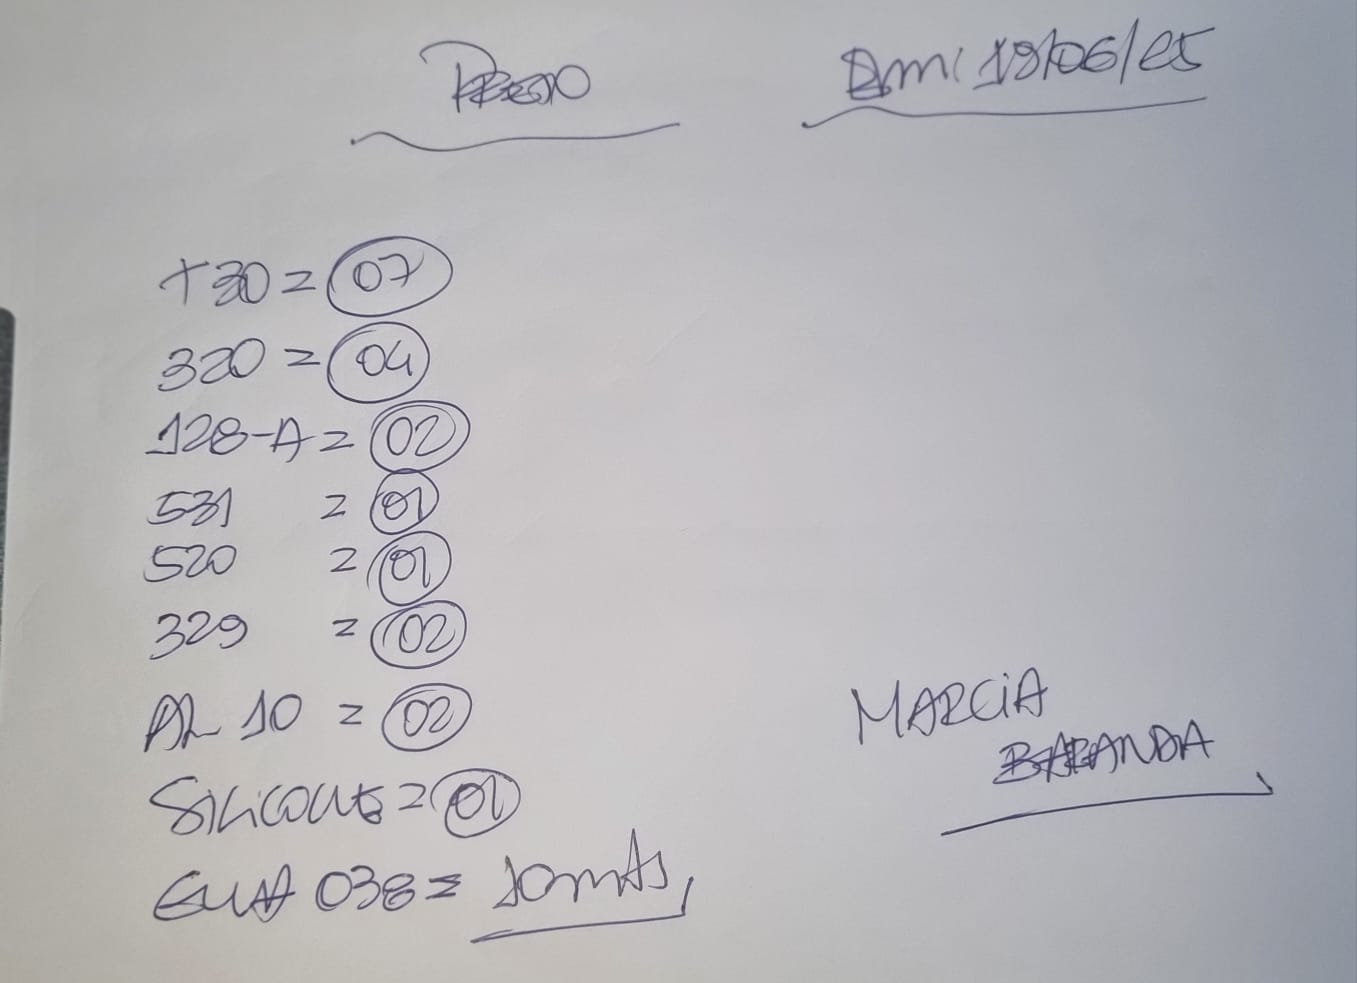 Em: 19/06/25
+30 = 07
320 = 04
128-A = 02
531 = 01
520 = 01
329 = 02
AL 10 = 02
SILICONE = 01
038 = 10 mts,
MARCIA
BARANDA